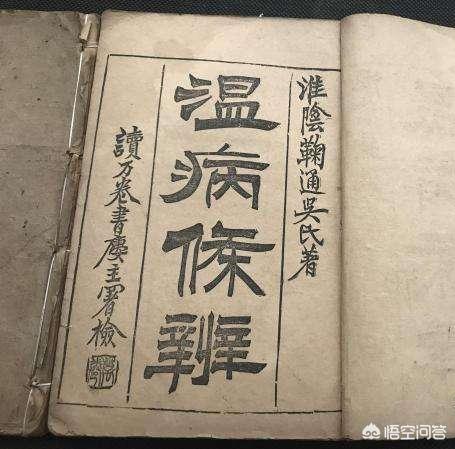 淮陰鞠通吳氏著
温病條辨
讀万卷書廔主署檢
悟空问答